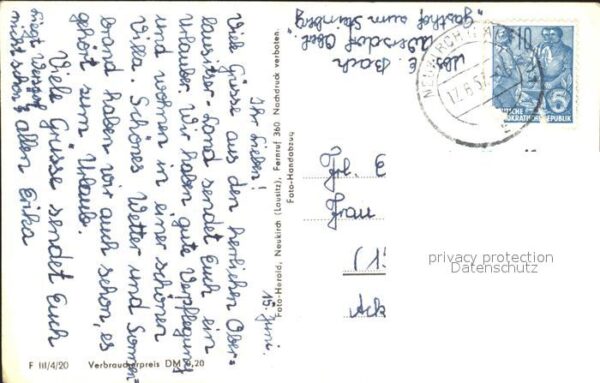 15. Juni.
Ihr Lieben!
Viele Grüsse aus den herrlichen Ober-
lausitzer-Land sendet Euch ein
Urlauber. Wir haben gute Verpflegung
und wohnen in einer schönen
Villa. Schönes Wetter und Sonnen
brand haben wir auch schon, es
gehört zum Urlaube.
Viele Grüsse sendet Euch
allen Erika
nicht schon?
Abs. E. Bach
Gasthof zum Sternberg
Foto-Herold, Neukirch (Lausitz), Fernruf 360 Nachdruck verboten.
Foto-Handabzug
F III/4/20 Verbraucherpreis DM 0,20
Frl. E
Fram
17.6.57
10
5
DEUTSCHE
DEMOKRATISCHE REPUBLIK
privacy protection
Datenschutz